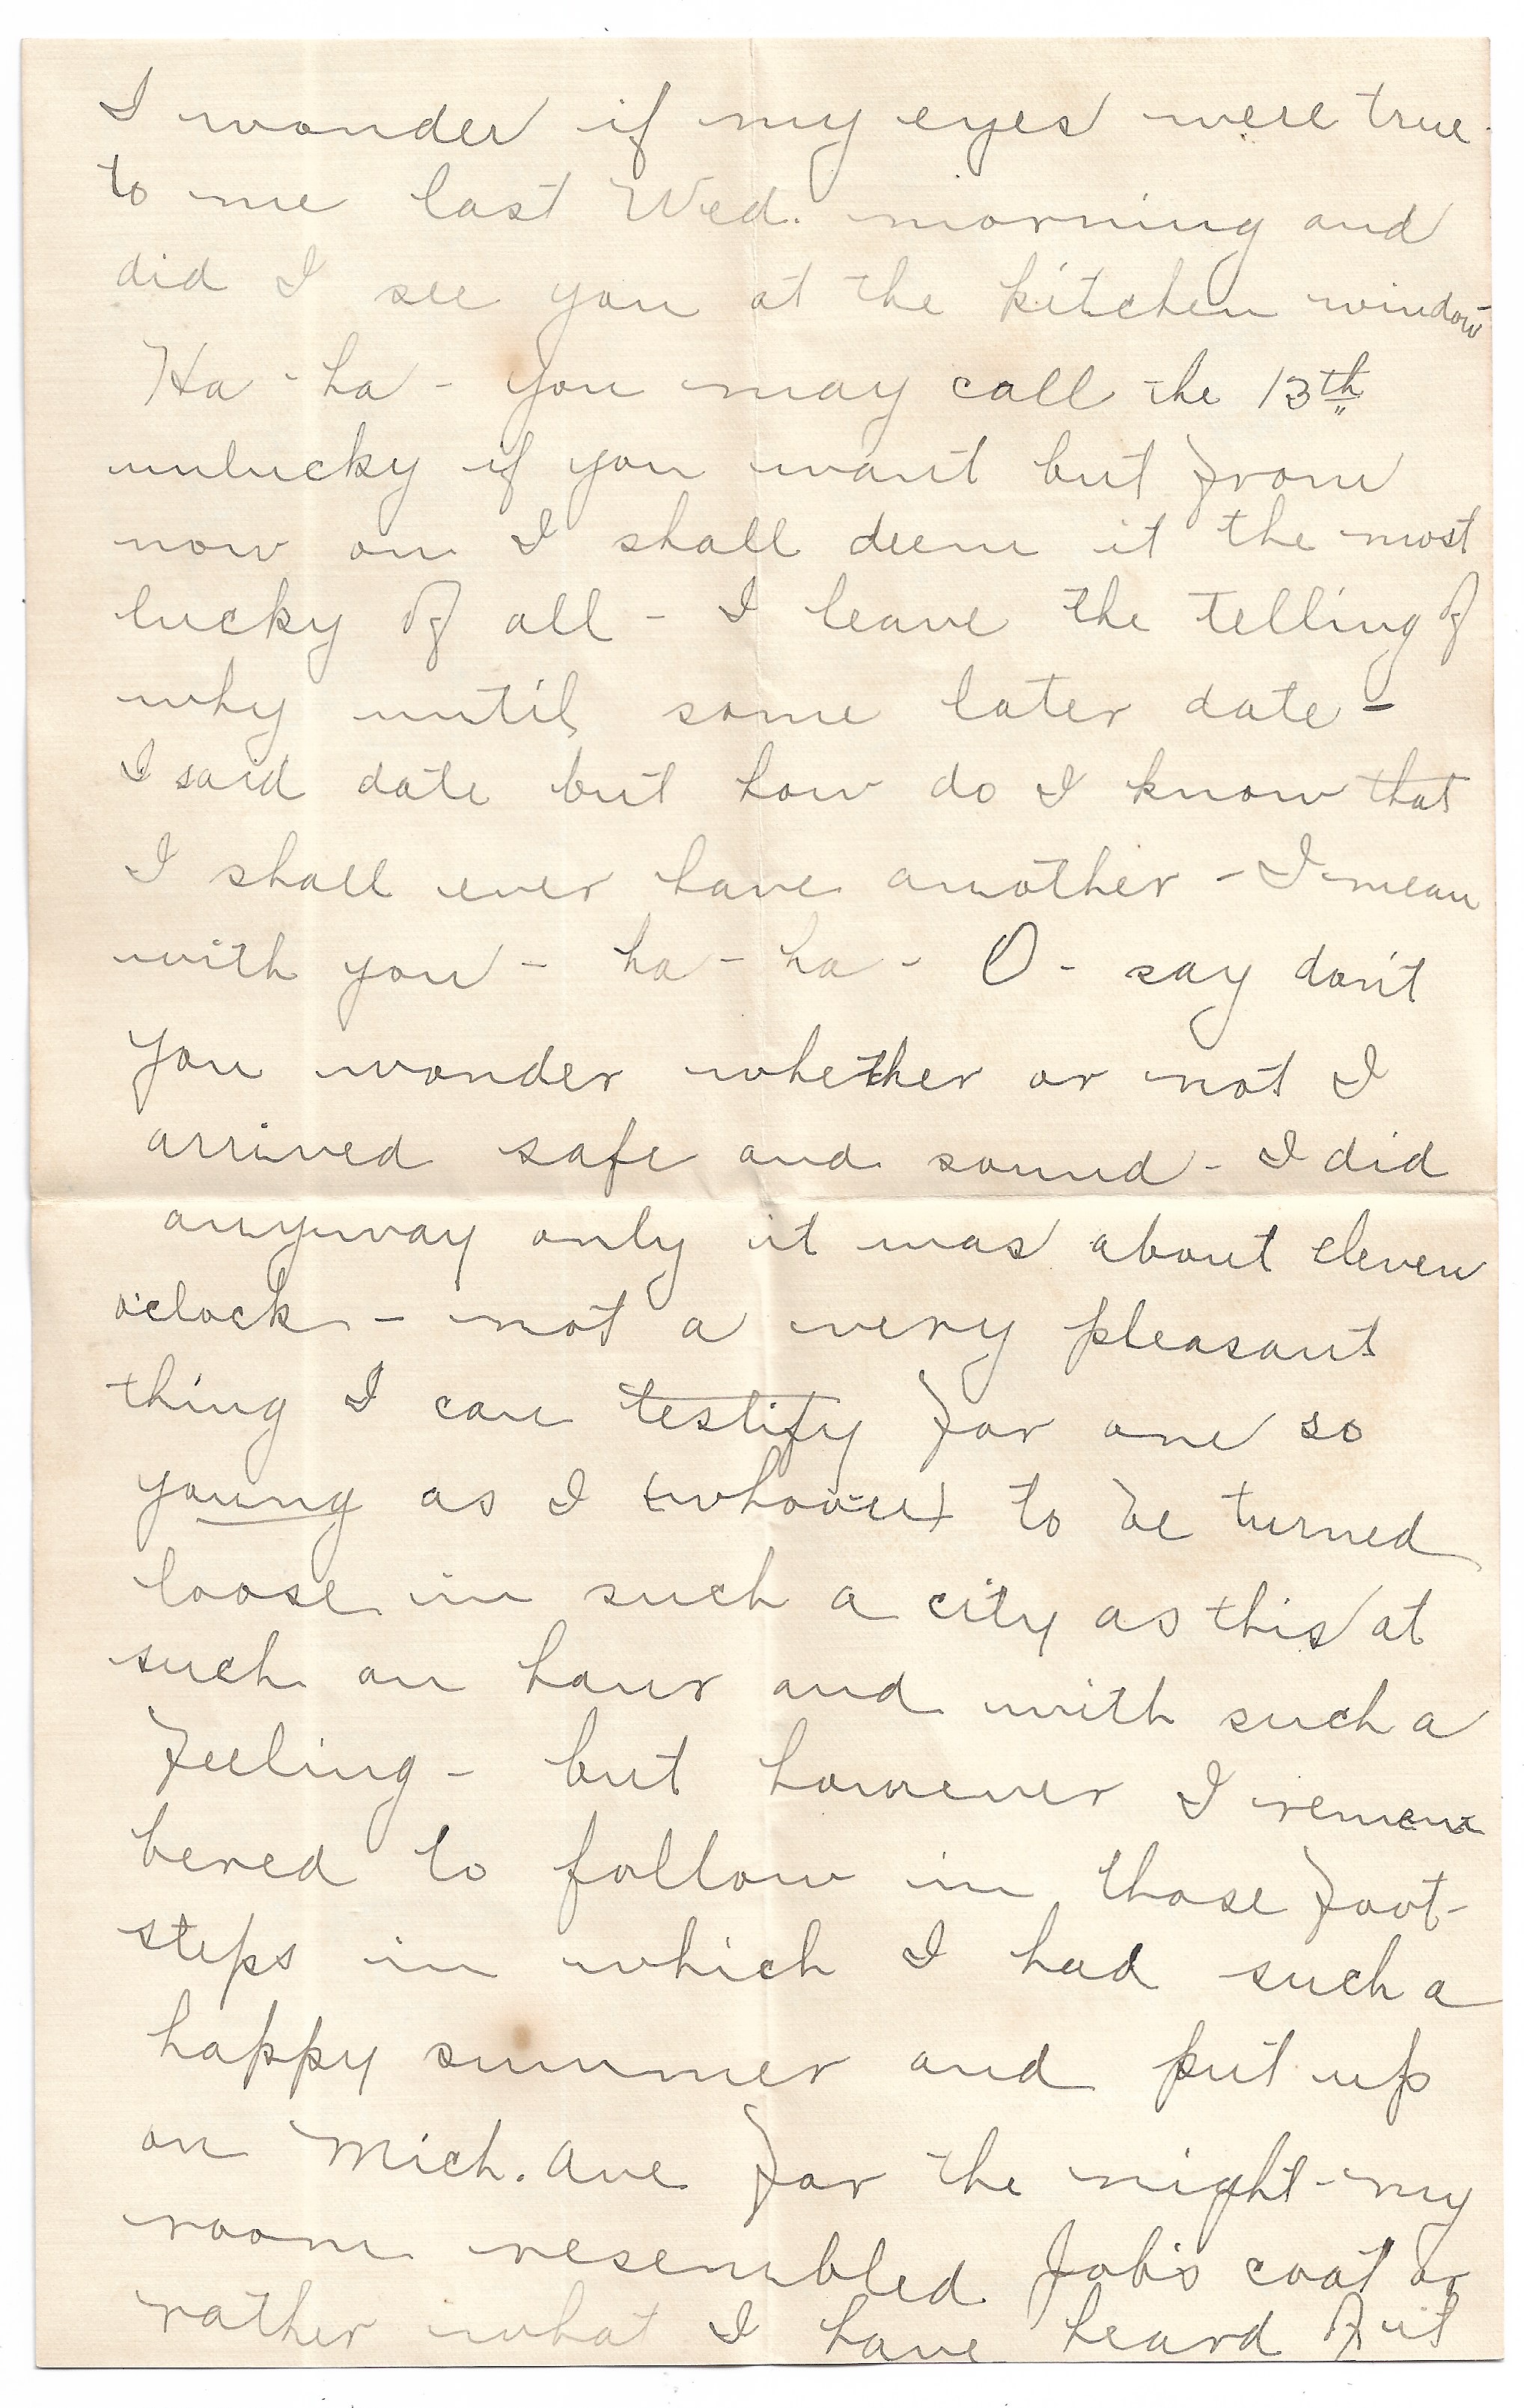 I wonder if my eyes were true
to me last Wed. morning and
did I see you at the kitchen window
Ha - ha - you may call the 13th
unlucky if you want but from
now on I shall deem it the most
lucky of all - I leave the telling of
why until some later date -
I said date but how do I know that
I shall ever have another - I mean
with you - ha - ha - O - say don't
you wonder whether or not I
arrived safe and sound - I did
anyway only it was about eleven
o'clock - not a very pleasant
thing I can testify for one so
young as I to be turned
loose in such a city as this at
such an hour and with such a
feeling - but however I remem
bered to follow in those foot-
steps in which I had such a
happy summer and put up
on Mich. Ave for the night - my
room resembled Job's coat or
rather what I have heard of it